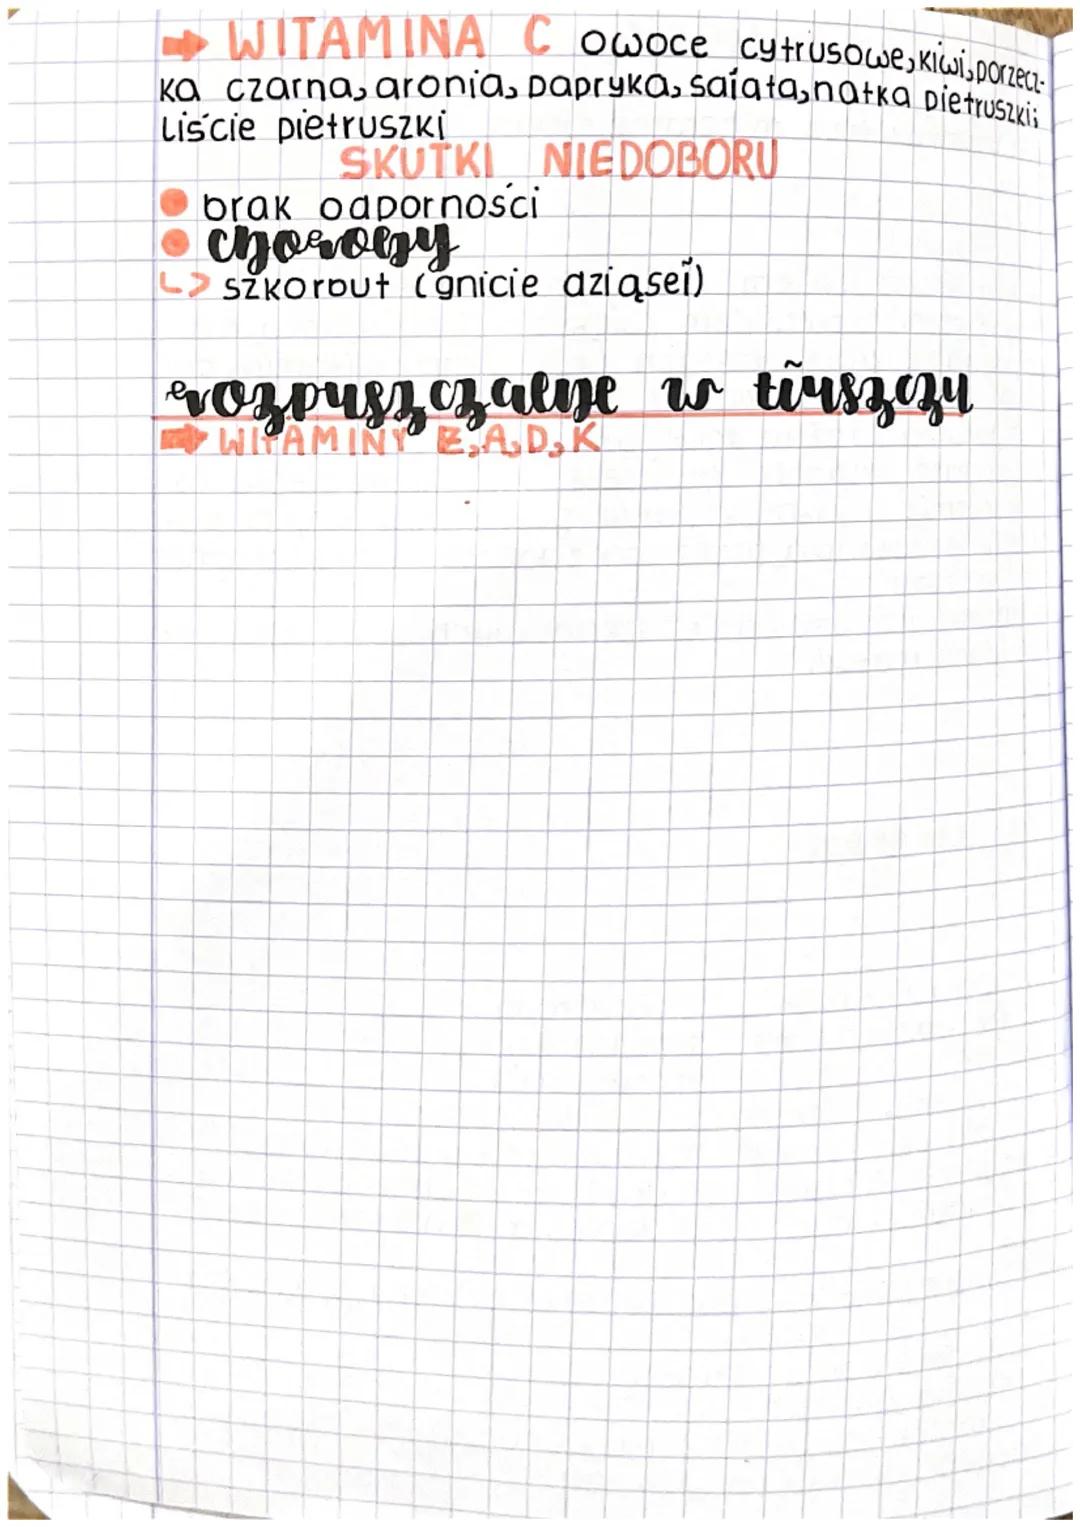 → WITAMINA C owoce cytrusowe, kiwi, porzecz-
ka czarna, aronia, papryka, sałata, natka pietruszki;
Liście pietruszki
SKUTKI NIEDOBORU
• brak odporności
• choroby
↳ szkorbut (gnicie dziąseł)
rozpuszczalne w tłuszczu
→ WITAMINY E, A, D, K